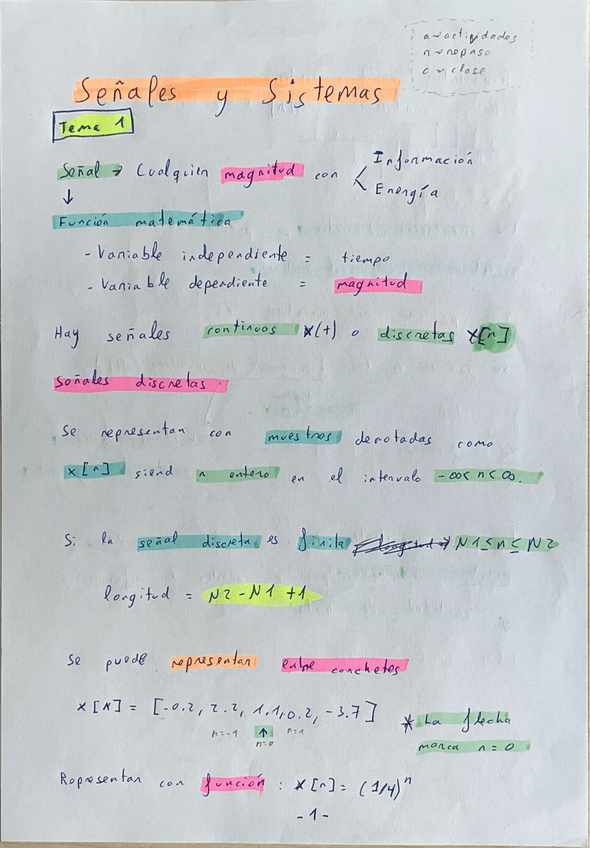 a → actividades
n → repaso
c → clase
Señales y Sistemas
Tema 1
Señal → Cualquier magnitud con < Información
Energía
↓
Función matemática
- Variable independiente = tiempo
- Variable dependiente = magnitud
Hay señales continuas x(t) o discretas x[n]
Señales discretas
Se representan con muestras denotadas como
x[n] siend n entero en el intervalo -∞< n < ∞.
Si la señal discreta es finita N1 ≤ n ≤ N2
longitud = N2 - N1 + 1
Se puede representar entre conchetes
x[N] = [-0.2, 2.2, 1.1, 0.2, -3.7]
n=-1 ↑ n=1
n=0
* La flecha
marca n = 0
Representar con función : x[n] = (1/4)ⁿ
- 1 -